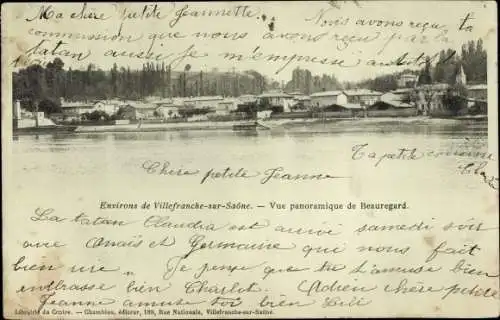 Ma chère petite Jeannette
Nous avons reçu ta
commission que nous avons reçu par la
tatan aussi je m'empresse
Chère petite Jeanne
Ta petite cousine
Lili
Environs de Villefranche-sur-Saône. — Vue panoramique de Beauregard.
La tatan Claudia est arrivé samedi soir
avec Anaïs et Germaine que nous fait
bien rire. Je pense que ta t'amuse bien
embrasse bien Charlot. Adieu chère petite
Jeanne amuse toi bien Lili
Librairie du Centre. — Chambion, éditeur, 108, Rue Nationale, Villefranche-sur-Saône.